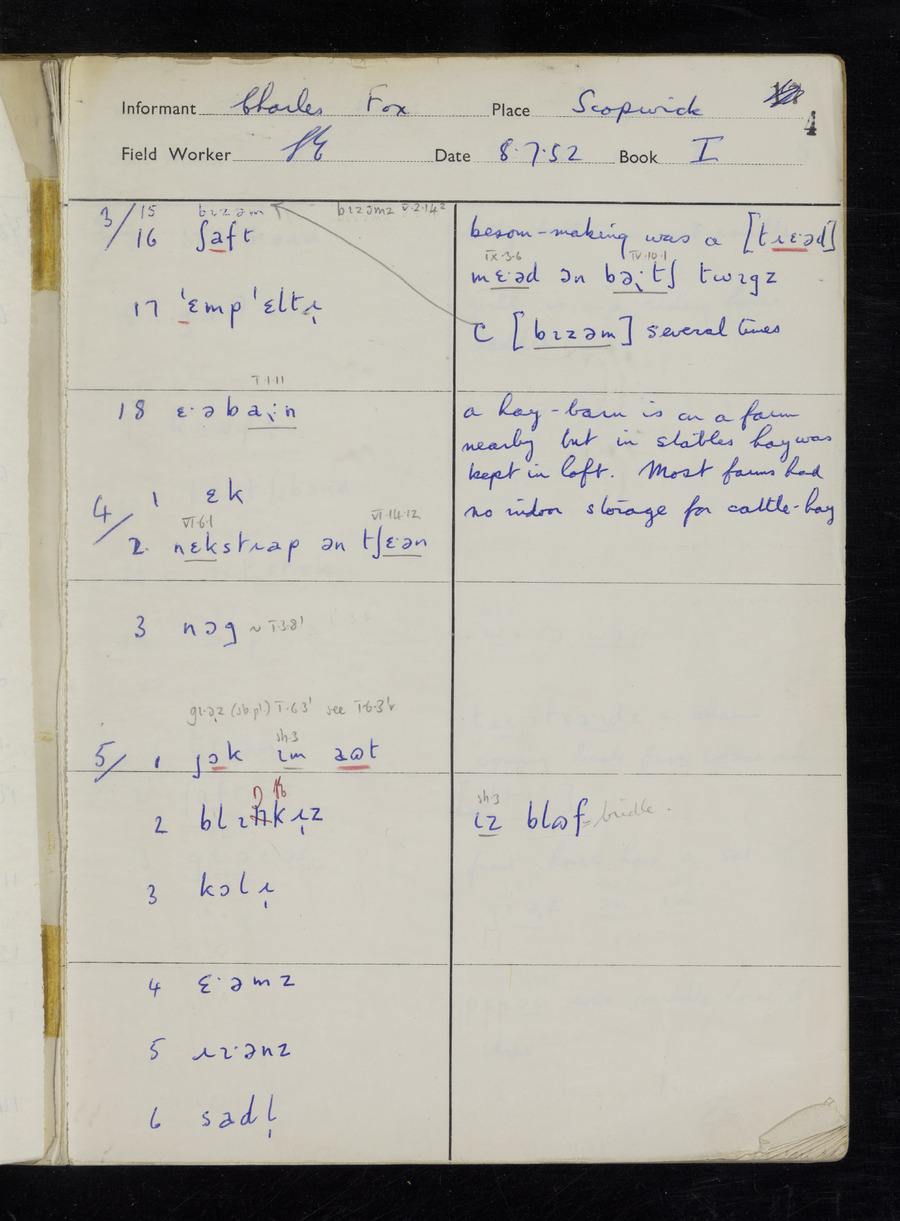 Informant Charles Fox Place Scopwick
4
Field Worker Date 8·7·52 Book I
3/ 15 bɪzəm bɪzəmz V·2·14²
16 ʃaft
17 ˈɛmpˈɛltɪ̣
I·1·11
18 ɛ·əbaˑ̣n
4/ 1 ɛk
VI·6·1 VI·14·12
2. nɛkstɹap ən tʃɛ·ən
3 nɔg ~ I·3·8¹
gɪ·əz (sb pl) I·6·3¹ see I·6·3
sh·3
5/ 1 jɔk ɪm aɷt
2 blɪŋkɪ̣z
3 kɔlɪ̣
4 ɛ·əmz
5 ɹɪ·ənz
6 sadl̩
besom-making was a [tɹɛ·əd]
IX·3·6 IV·10·1
mɛ·əd ən bəˑ̣tʃ twɪgz
C [bɪzəm] several times
a hay-barn is on a farm
nearby but in stables hay was
kept in loft. Most farms had
no indoor storage for cattle-hay
sh·3
ɪz blɷf = bridle.